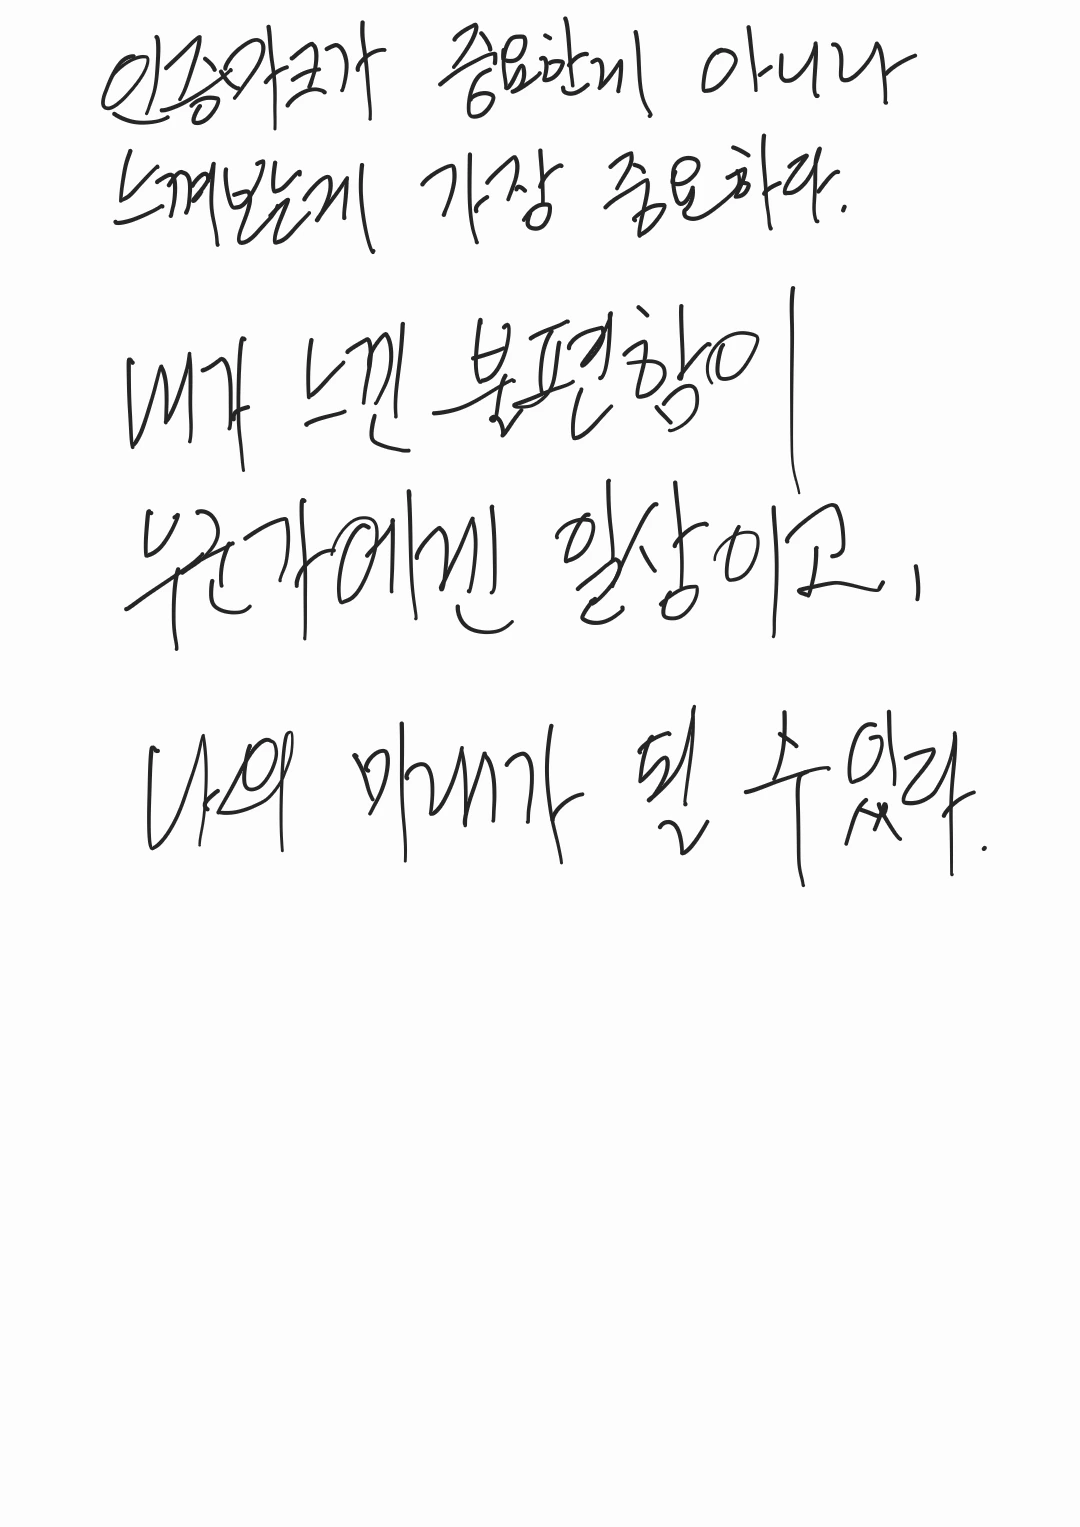 인증마크가 중요한게 아니라
느껴봤는게 가장 중요하다.
내가 느낀 불편함이
누군가에겐 일상이고,
나의 미래가 될 수 있다.